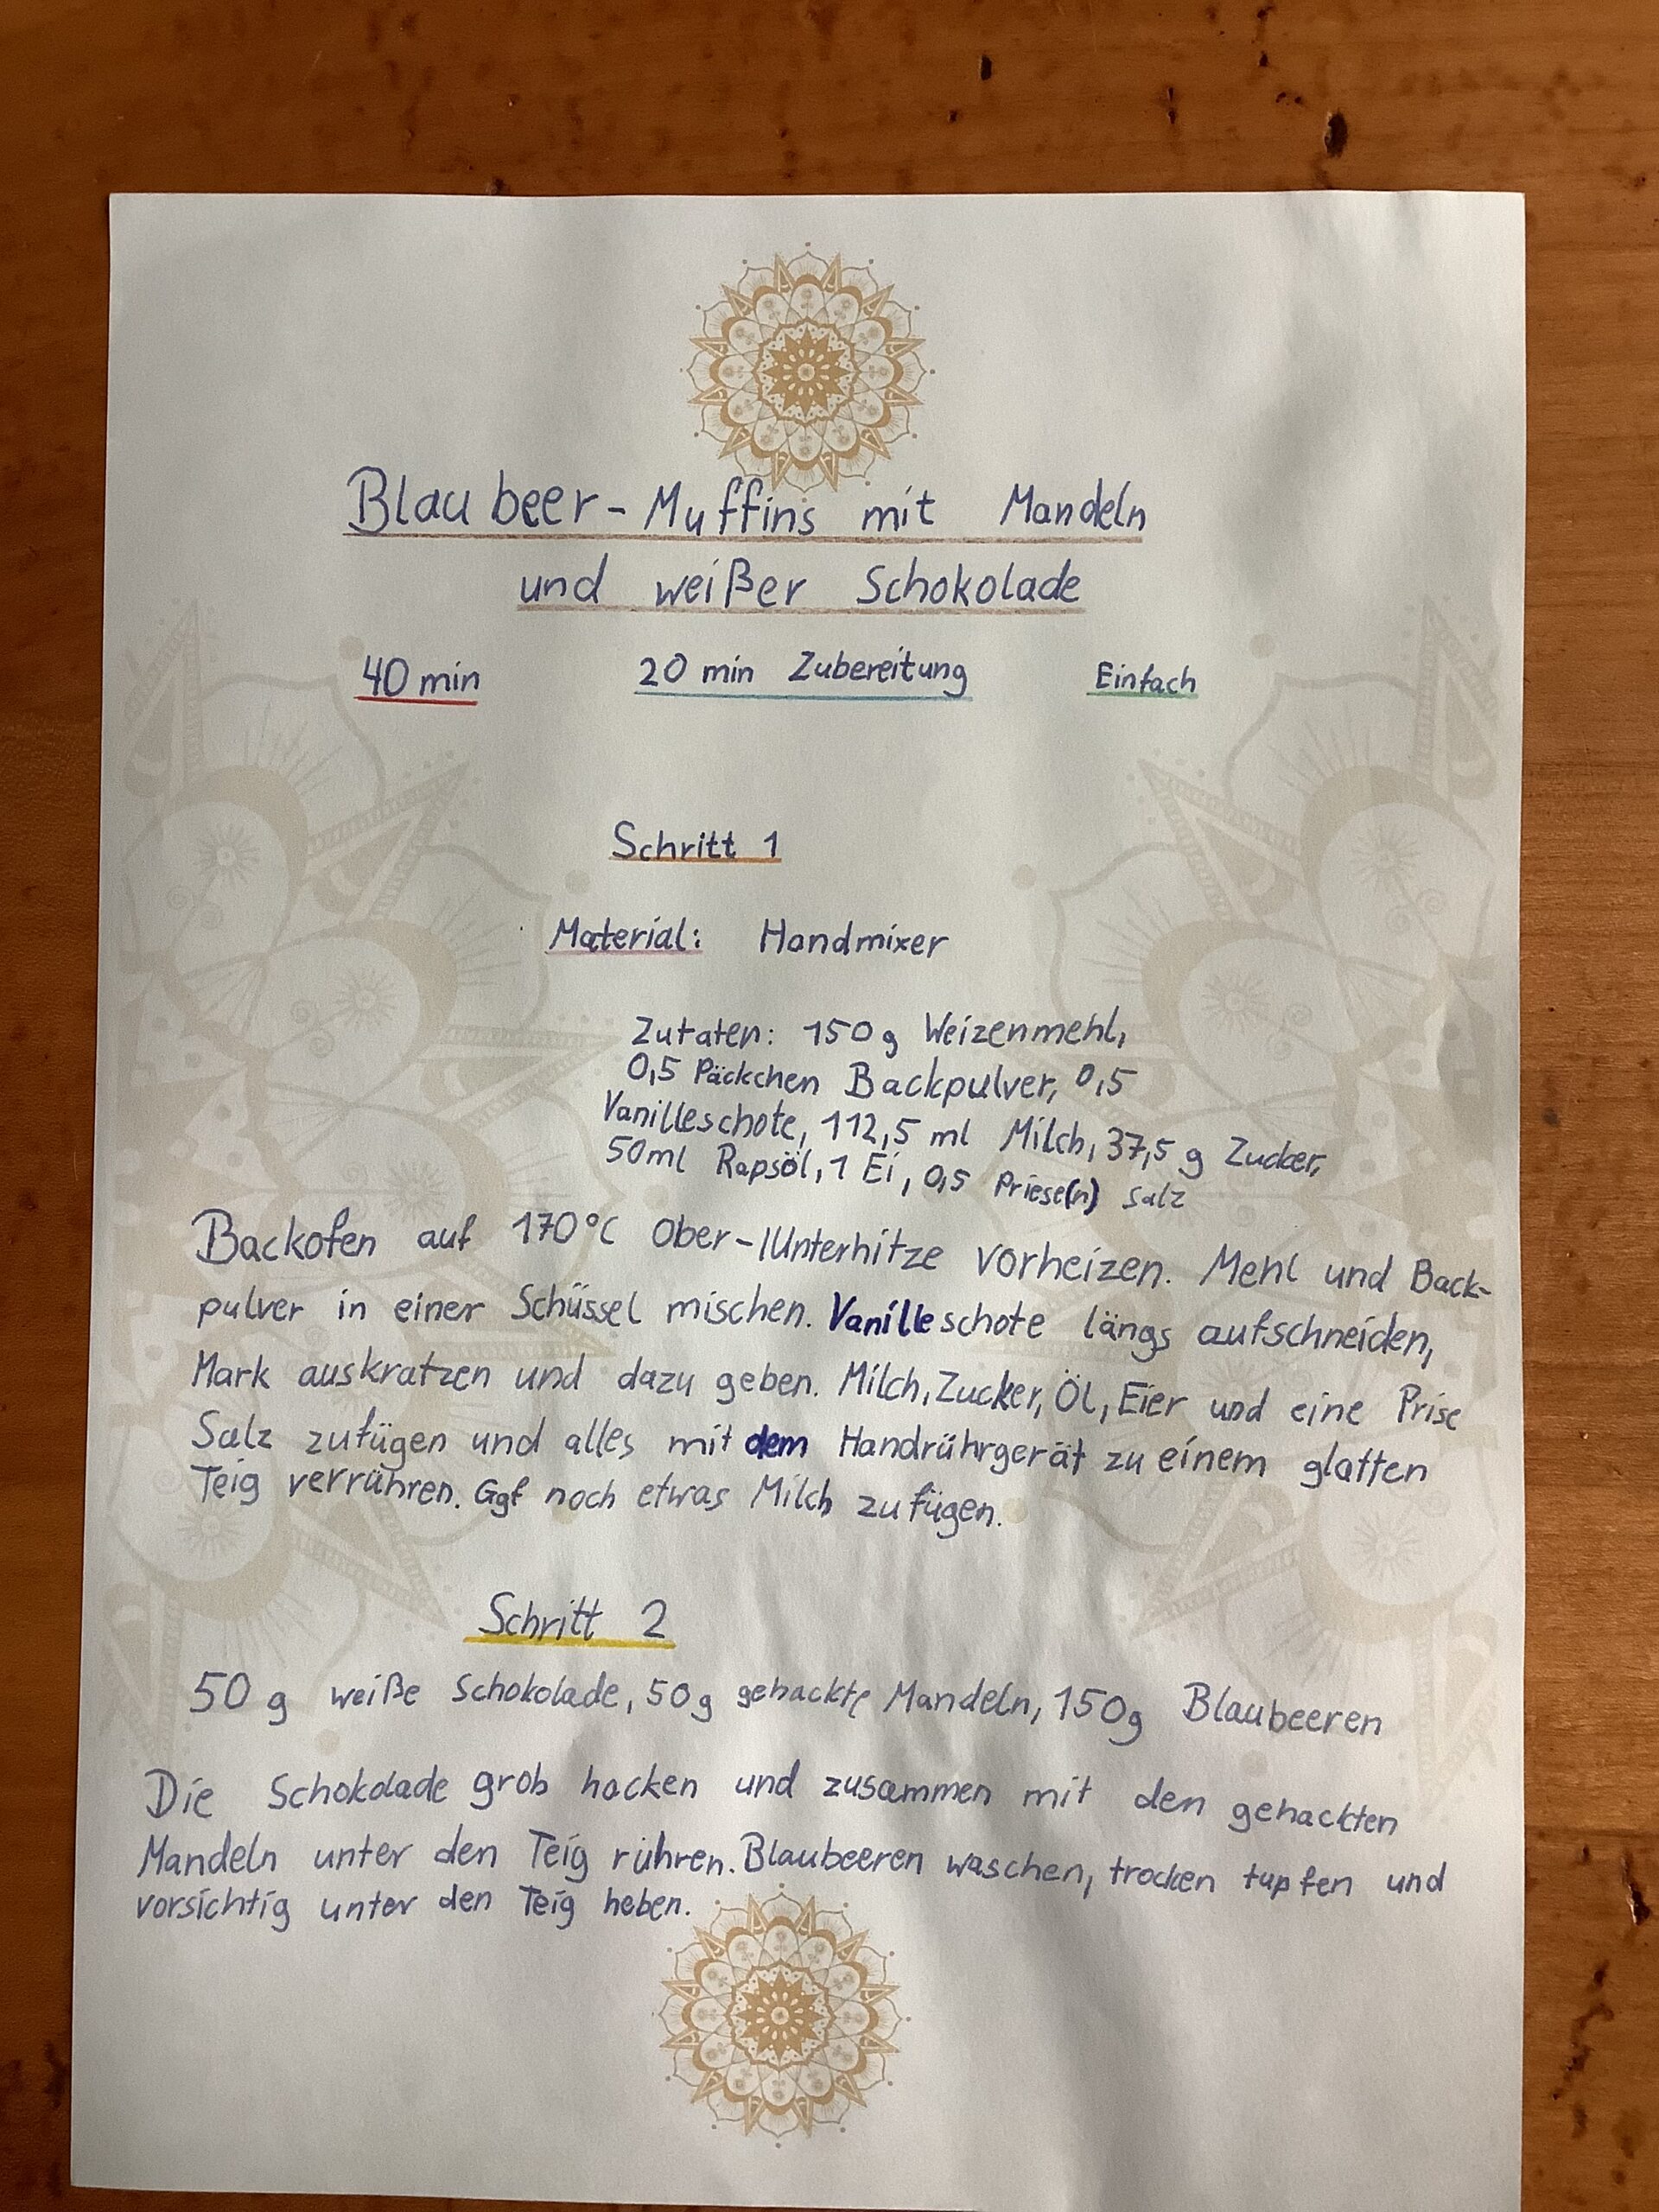 Blaubeer-Muffins mit Mandeln
und weißer Schokolade
40 min 20 min Zubereitung Einfach
Schritt 1
Material: Handmixer
Zutaten: 150g Weizenmehl,
0,5 Päckchen Backpulver, 0,5
Vanilleschote, 112,5 ml Milch, 37,5 g Zucker,
50ml Rapsöl, 1 Ei, 0,5 Priese(n) Salz
Backofen auf 170°C Ober-/Unterhitze vorheizen. Mehl und Back-
pulver in einer Schüssel mischen. Vanilleschote längs aufschneiden,
Mark auskratzen und dazu geben. Milch, Zucker, Öl, Eier und eine Prise
Salz zufügen und alles mit dem Handrührgerät zu einem glatten
Teig verrühren. Ggf noch etwas Milch zufügen.
Schritt 2
50 g weiße Schokolade, 50g gehackte Mandeln, 150g Blaubeeren
Die Schokolade grob hacken und zusammen mit den gehackten
Mandeln unter den Teig rühren. Blaubeeren waschen, trocken tupfen und
vorsichtig unter den Teig heben.